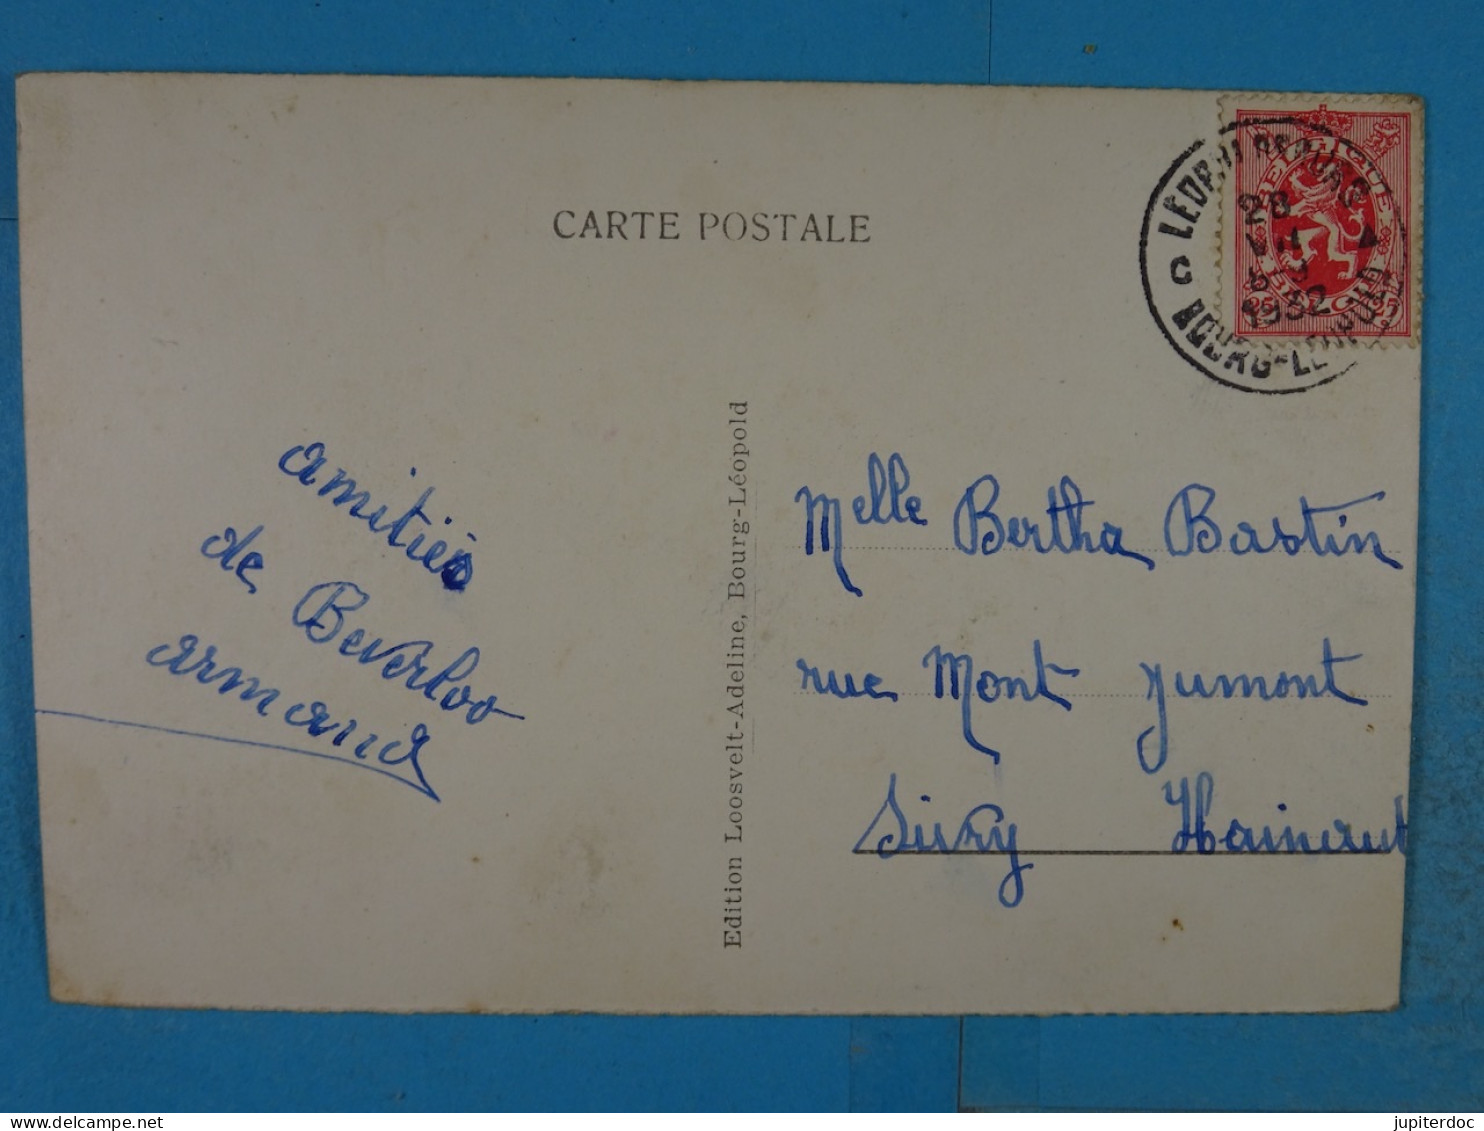 CARTE POSTALE
BELGIQUE
BELGIË
25 25
28
1932
C
BOURG-LEOPOLD
amitiés
de Beverloo
armand
Edition Loosvelt-Adeline, Bourg-Léopold
Melle Bertha Bastin
rue Mont Jumont
Sivry Hainaut
jupiterdoc